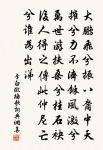 大鵬飛兮振八裔中天
摧兮力不濟餘風激兮
萬世遊扶桑兮掛石袂
後人得之傳此仲尼亡
兮誰為出涕
李白臨路歌詞典網書